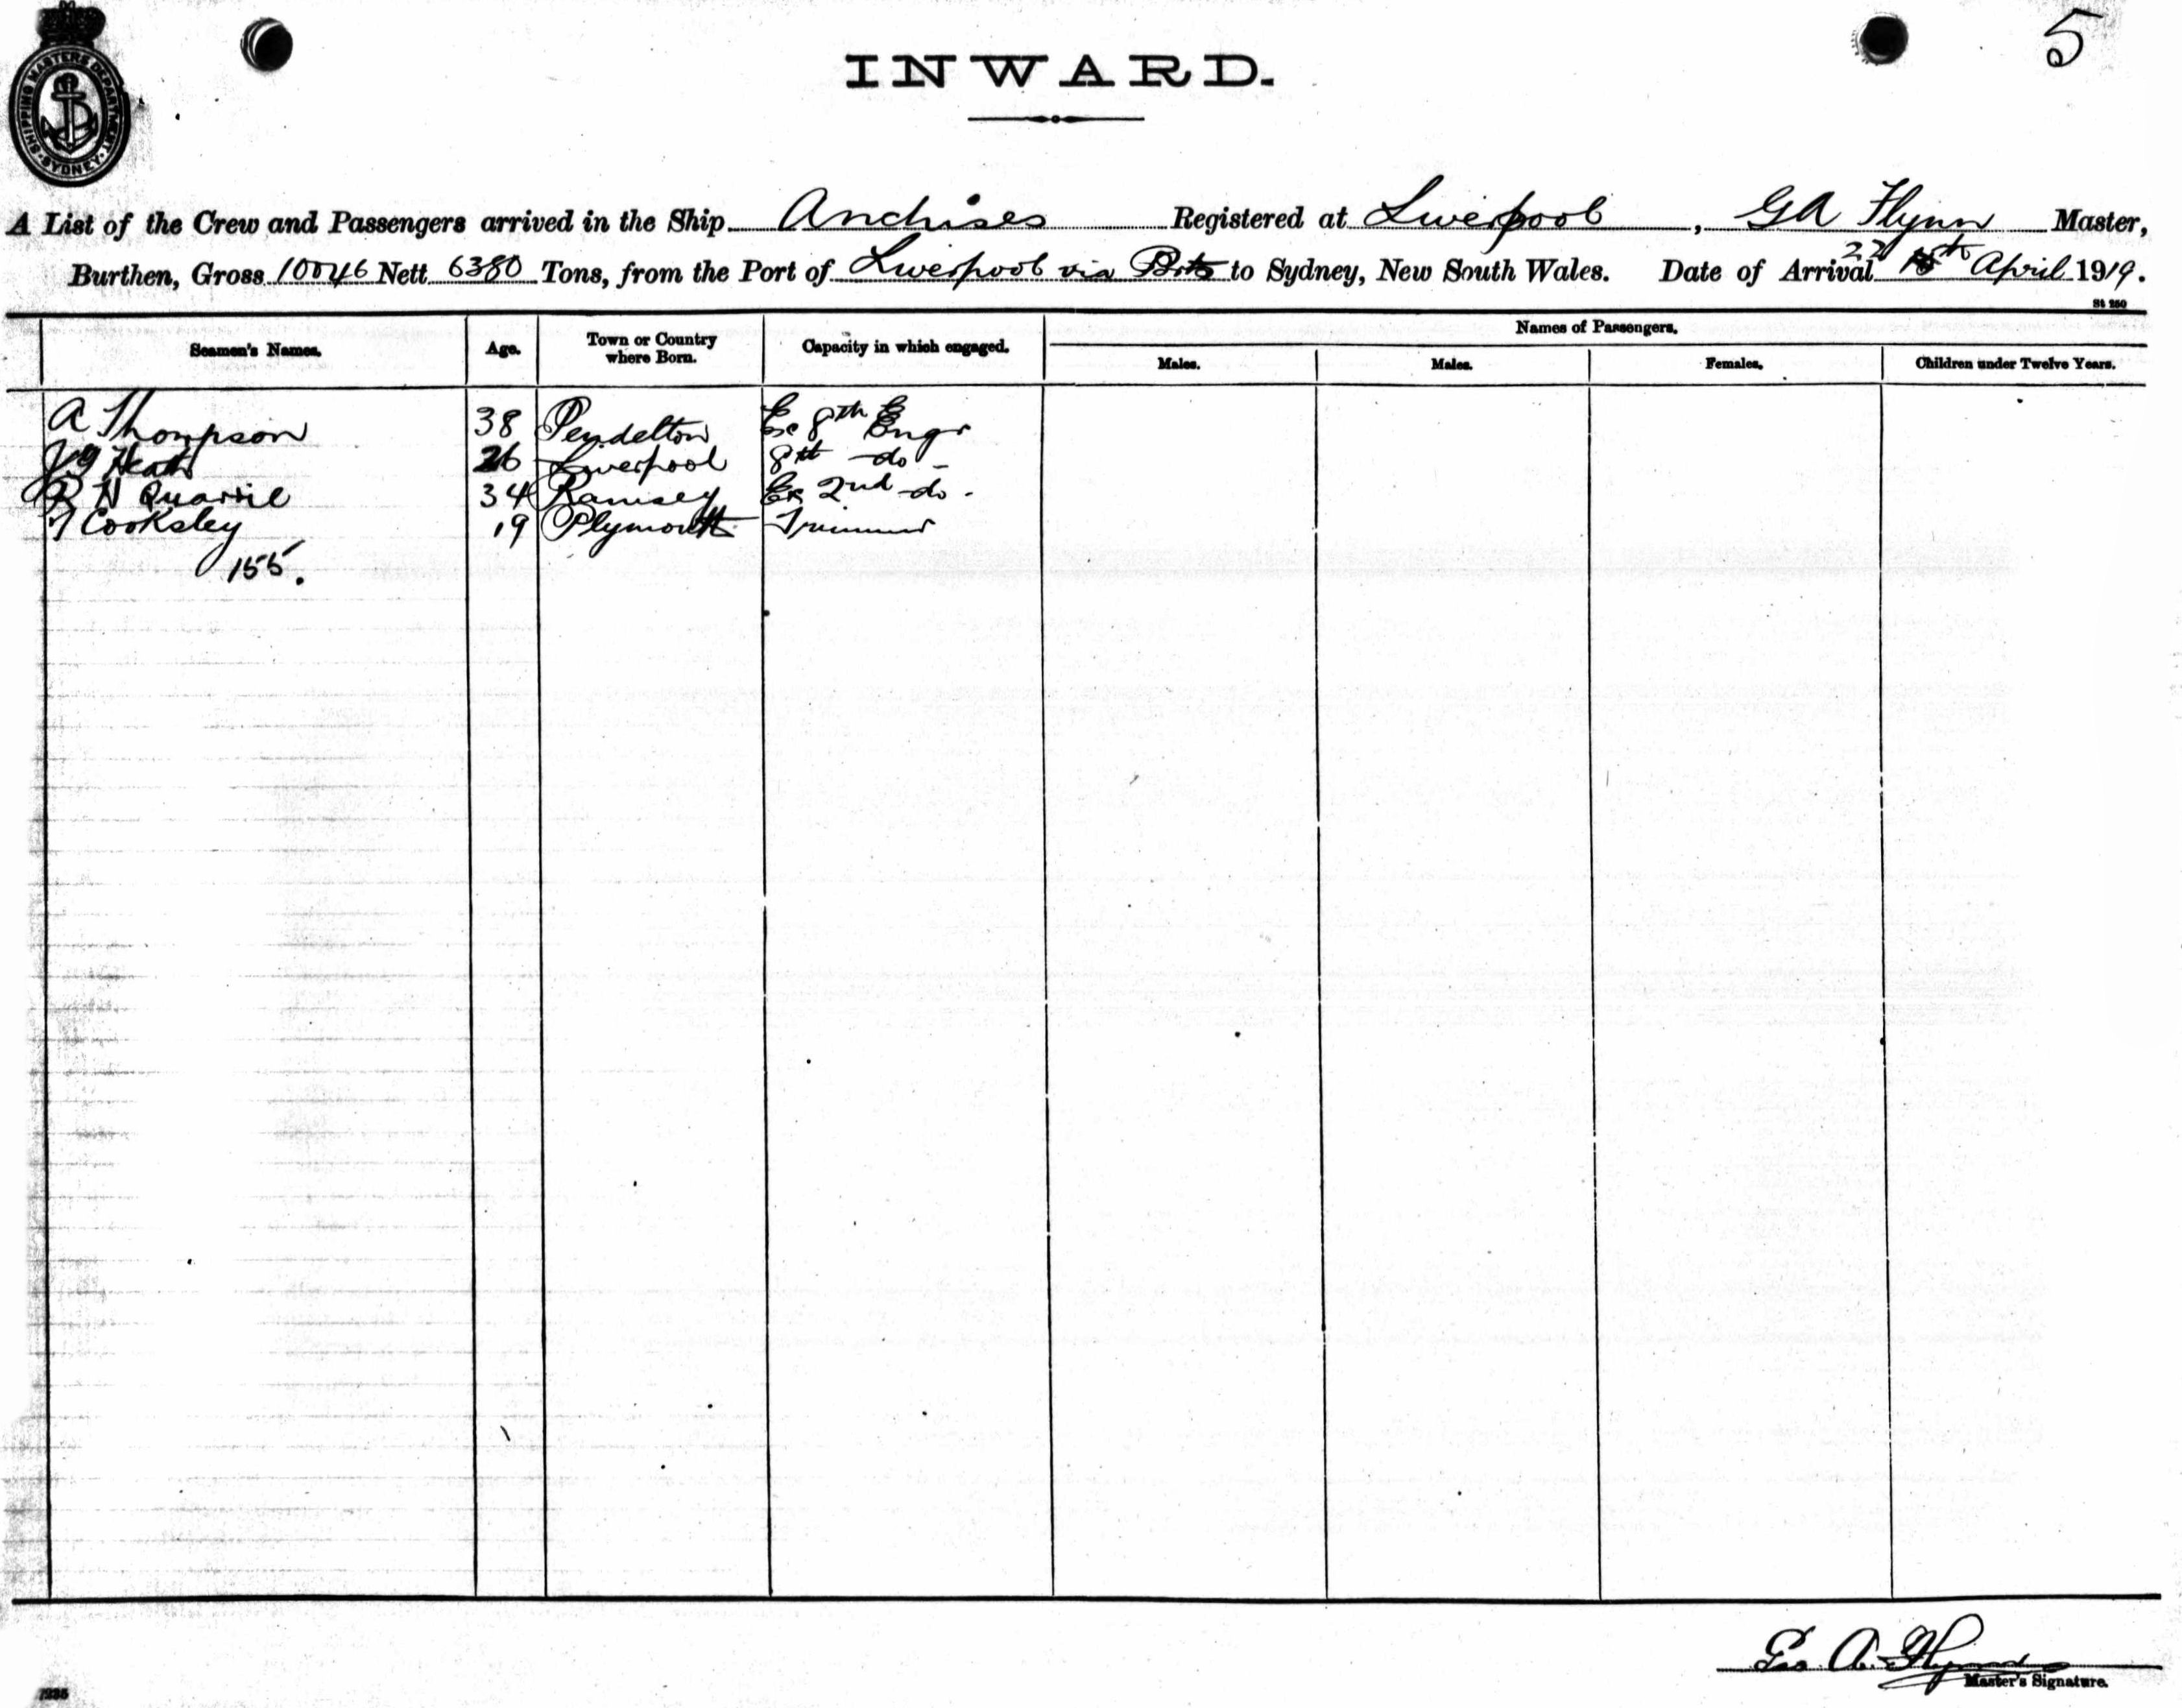 SHIPPING MASTERS DEPARTMENT
SYDNEY
5
INWARD.
A List of the Crew and Passengers arrived in the Ship Anchises Registered at Liverpool, GA Flynn Master,
22
Burthen, Gross 10046 Nett 6380 Tons, from the Port of Liverpool via Pts to Sydney, New South Wales. Date of Arrival April 1919.
St 250
Seamen's Names. Age. Town or Country where Born. Capacity in which engaged. Names of Passengers.
Males. Males. Females. Children under Twelve Years.
A Thompson 38 Pendelton Ex 8th Engr
J G Heath 26 Liverpool 8th -do-
R N Quarrie 34 Ramsey Ex 2nd -do-
Cooksley 19 Plymouth Trimmer
155.
Geo. A. Flynn
Master's Signature.